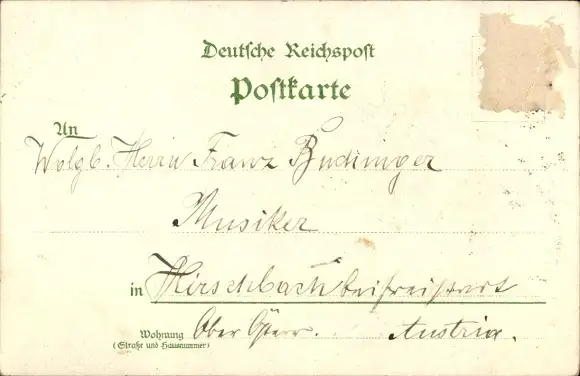 Deutsche Reichspost
Postkarte
An
Wolgb. Herrn Franz Budinger
Musiker
in Hirschbach bei Freistadt
Wohnung Ober Österr. Austria.
(Straße und Hausnummer)